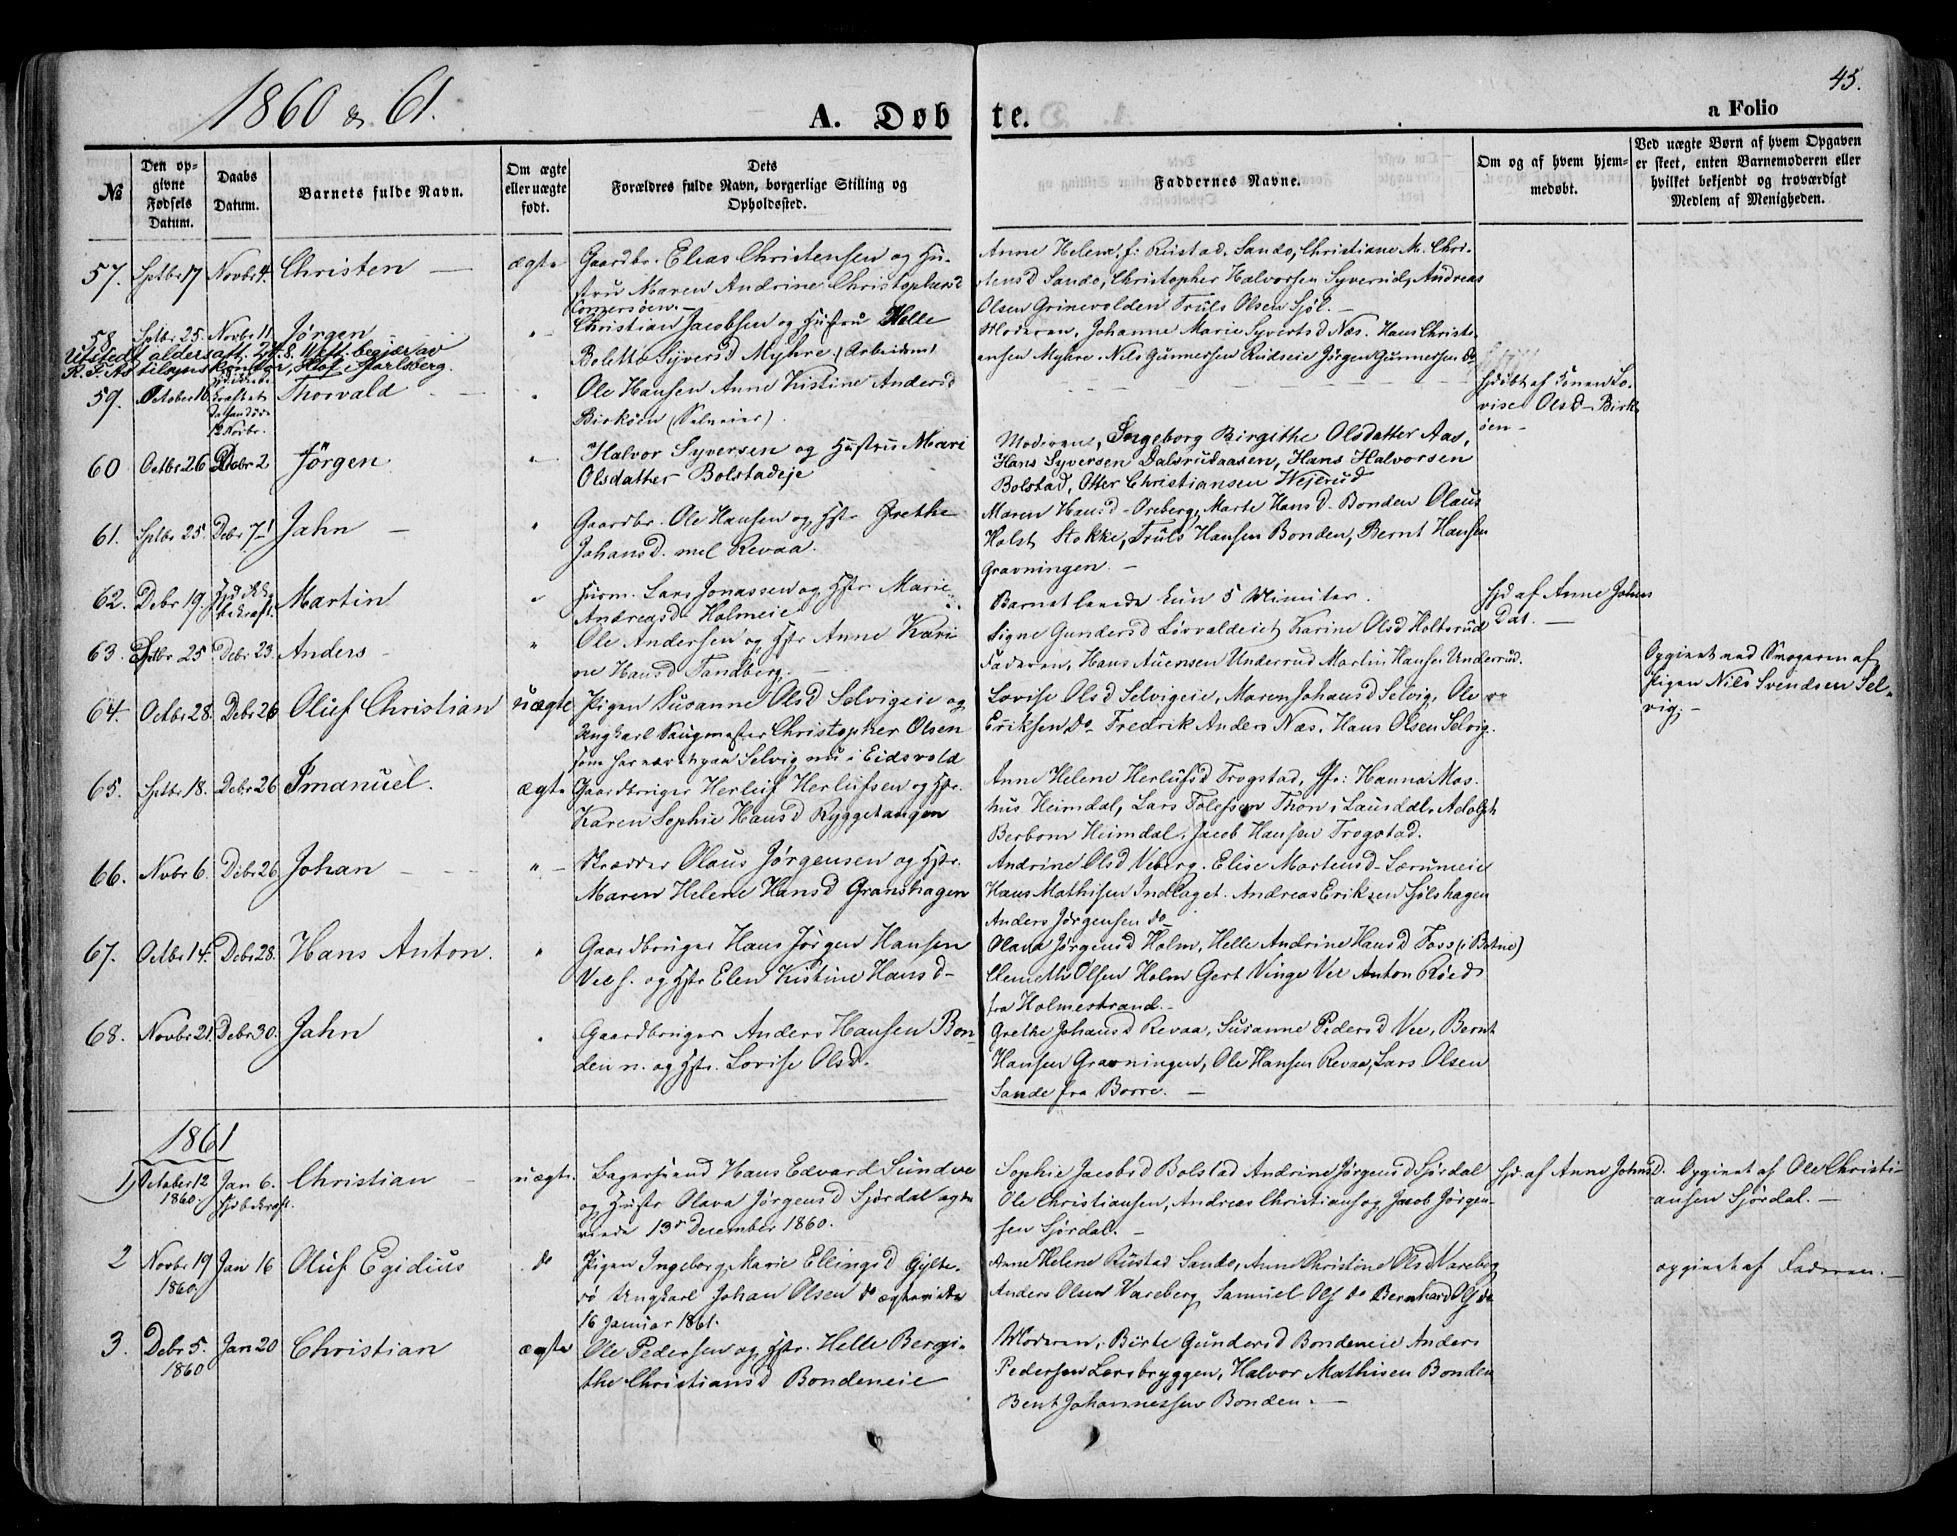 1860 & 61.
A. Døbte.
45.
a Folio
№
Den opgivne Fødsels Datum.
Daabs Datum.
Barnets fulde Navn.
Om ægte eller uægte født.
Dets Forældres fulde Navn, borgerlige Stilling og Opholdssted.
Faddernes Navne.
Om og af hvem hjemmedøbt.
Ved uægte Børn af hvem Opgaven er skeet, enten Barnemoderen eller hvilket bekjendt og troværdigt Medlem af Menigheden.
57. Sptbr 17 Novbr 4. Christen — ægte
Gaardbr. Elias Christensen og Hu-
stru Maren Andrine Christophersd
Anne Helene, f: Rustad, Sando, Christiane M. Chri-
stensd Sando, Christopher Halvorsen Syverud, Andreas
Olsen Grinevolden Truls Olsen Sjøl. —
58. Sptbr. 25. Novbr 11 Jørgen — "
Christian Jacobsen og Hustru Helle
Bolette Syversd Myhre (Arbeidsm)
Moderen, Johanne Marie Syvertsd Næs. Hans Christi-
ansen Myhre Nils Gunnersen Rudseie Jørgen Gunnersen do
Utstedt aldersatt. 24. 8. 1911. begjær av
59. October 16 12 Novbr. Thorvald "
Ole Hansen Anne Kistine Andersd
Birkøen (Selveier)
hjdøbt af Konen Lo-
vise Olsd Birk-
øen —
60 Octbr 26 Debr 2 Jørgen "
Halvor Syversen og Hustru Mari
Olsdatter Bolstadeje
Moderen, Ingeborg Birgithe Olsdatter Aas,
Hans Syversen Dalsrudaasen, Hans Halvorsen
Bolstad, Otter Christiansen Wejerud
61. Sptbr 25. Debr 7 Jahn — "
Gaardbr. Ole Hansen og Hstr Grethe
Johansd. mel Revaa.
Maren Hansd Oreberg, Marte Hansd Bonden Olaus
Holst Stokke, Truls Hansen Bonden, Bernt Hansen
Gravningen. —
62. Debr 19. Martin "
Husm. Lars Jonassen og Hstr Marie
Andreasd Holmeie
Barnet levede kun 5 Minuter.
hjd af Anne Johns
Dat. —
63. Sptbr 25 Debr 23. Anders — "
Ole Andersen og Hstr Anne Kari-
ne Hansd Tandberg. —
Signe Gundersd Løvaldeiet Karine Olsd Holtsrud
Faderen, Hans Auensen Underrud Martin Hanse Underrud.
64. Octbr 28. Debr 26 Oluf Christian uægte
Pigen Susanne Olsd Selvigeie og
Ungkarl Saugmester Christopher Olsen
som har været paa Selvig nu i Eidsvold
Lovise Olsd Selvigeie, Maren Johansd Selvig, Ole
Eriksen do Fredrik Anders Næs. Hans Olsen Selvig.
Opgivet ved Svogeren af
Pigen Nils Svendsen Sel-
vig. —
65. Sptbr 18. Debr 26 Imanuel. ægte
Gaardbruger Herluf Herlufsen og Hstr.
Karen Sophie Hansd Ryggetangen
Anne Helene Herlufsd Trogstad, Jfr: Hanna Mos-
hus Heimdal, Lars Tolefsen Thon i Lausdal, Adolph
Berbom Heimdal, Jacob Hansen Trogstad.
66. Novbr 6. Debr 26 Johan — "
Skrædder Olaus Jørgensen og Hstr.
Maren Helene Hansd Granshagen
Andrine Olsd Veberg. Elise Mortensd Lærumeie
Hans Mathisen Indlaget. Andreas Eriksen Sjølshagen
Anders Jørgensen do
67. Octbr 14. Debr 28. Hans Anton. "
Gaardbruger Hans Jørgen Hansen
Vee s. og Hstr Elen Kistine Hansd —
Olava Jørgensd Holm, Helle Andrine Hansd Foss (i Botne)
Clemeth Olsen Holm Gert Vinge Vee Anton Røed
fra Holmestrand. —
68. Novbr 21. Debr 30. Jahn "
Gaardbruger Anders Hansen Bon-
den n. og Hstr. Lovise Olsd.
Grethe Johansd Revaa, Susanne Pedersd Vee, Bernt
Hansen Gravningen, Ole Hansen Revaa, Lars Olsen
Sande fra Borre. —
1861
1) October 12 1860. Jan 6. Hjd bekræft. Christian — uægte.
Bagersvend Hans Edvard Sundve
og Hustr Olava Jørgensd Sjørdal ægte
viede 13de December 1860.
Sophie Jacobsd Bolstad Andrine Jørgensd Sjørdal
Ole Christiansen, Andreas Christians og Jacob Jørgen-
sen Sjørdal. —
hjd. af Anne Johnsd.
Opgivet af Ole Christi-
ansen Sjørdal. —
2 Novbr 19 1860 Jan 16 Oluf Egidius do
Pigen Ingeborg Marie Ellingsd Gylte-
rø Ungkarl Johan Olsen do ægteviede
16 Januar 1861.
Anne Helene Rustad Sando, Anne Christine Olsd Vareberg
Anders Olsen Vareberg Samuel Ols do Bernhard Ols do
opgivet af Faderen. —
3. Debr 5. 1860 Jan 20 Christian ægte
Ole Pedersen og Hstr. Helle Bergi-
the Christiansd Bondeneie
Moderen, Birte Gundersd Bondeneie Anders
Pedersen Lersbryggen, Halvor Mathisen Bonden
Bent Johannessen Bonden. —